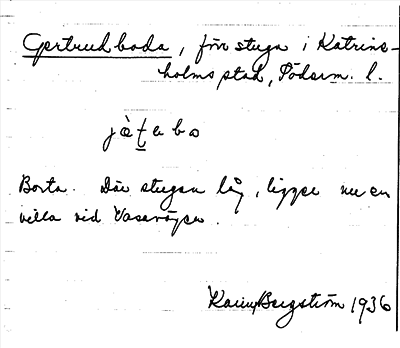 Gertrudboda, förr stuga i Katrine-
holms stad, Söderm. l.
jàt̲abo
Borta. Där stugan låg, ligger nu en
villa vid Vasavägen.
Karin Bergström 1936